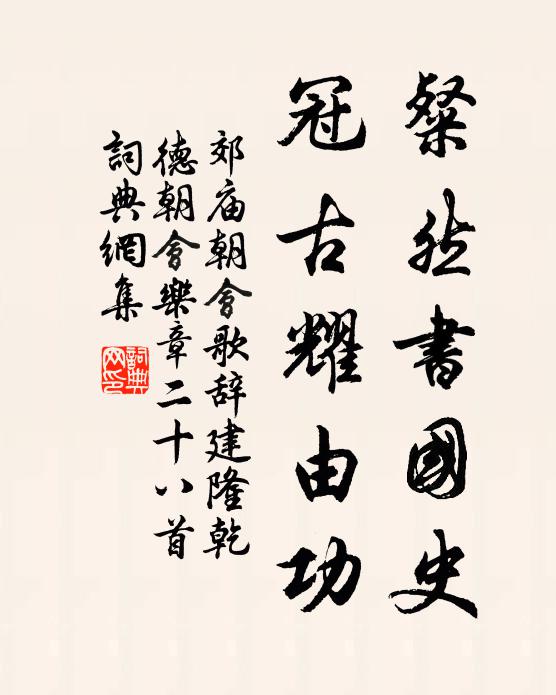 粲然書國史
冠古耀由功
郊庙朝會歌辞建隆乾
德朝會樂章二十八首
詞典網集
詞典
网印